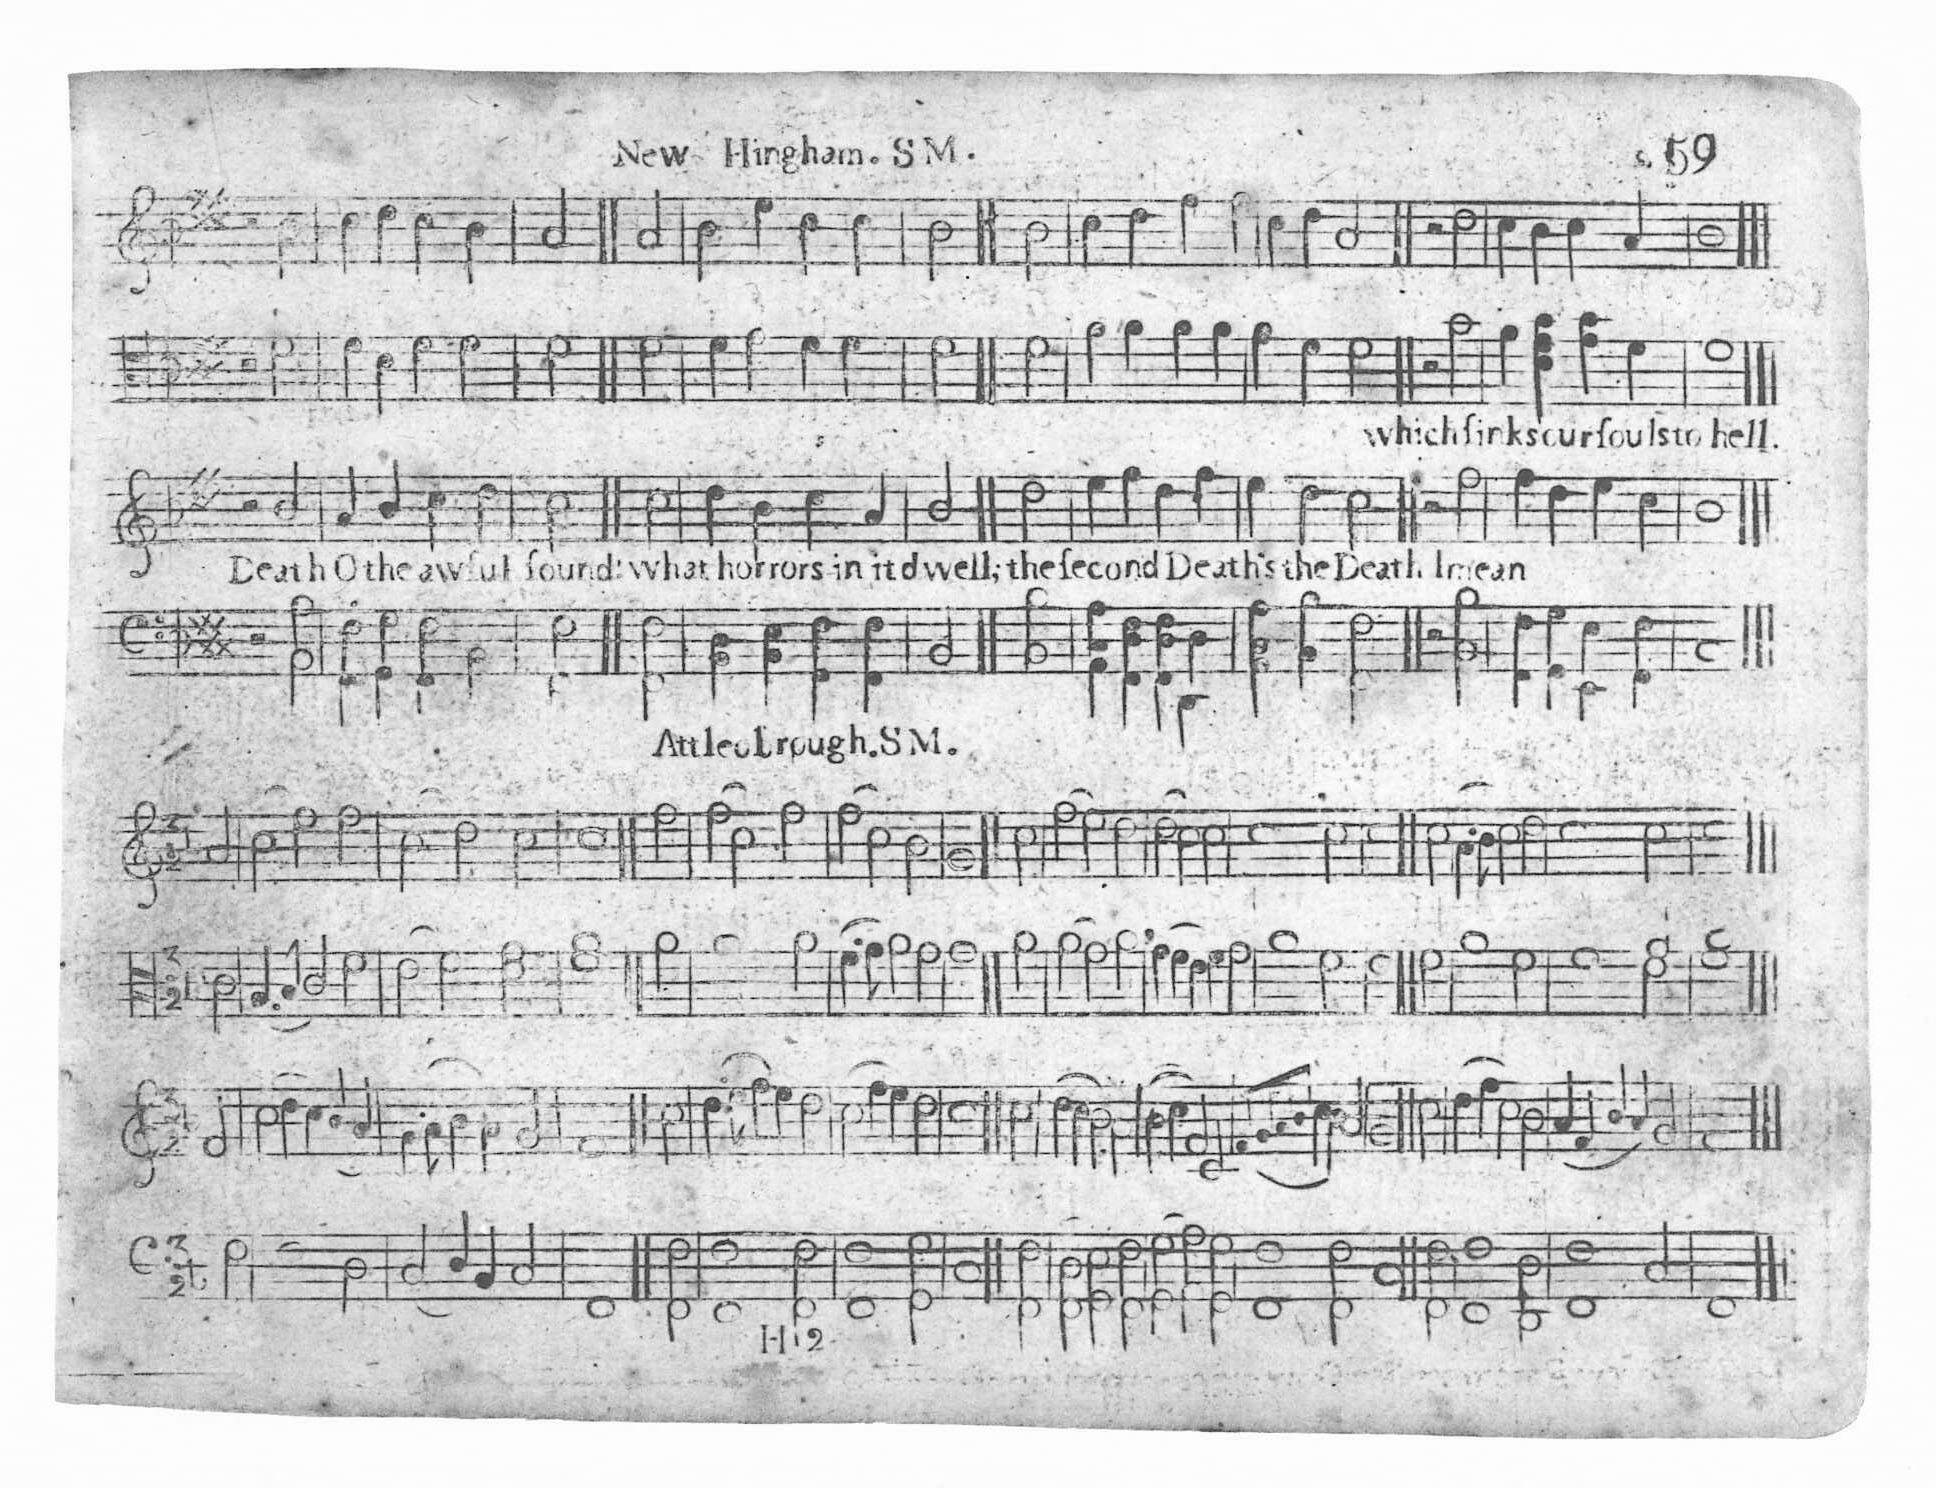 New Hingham. S M.
59
which ſinks our ſouls to hell.
Death O the awful ſound! what horrors in it dwell; the ſecond Death's the Death I mean
Attleobrough. S M.
H 2